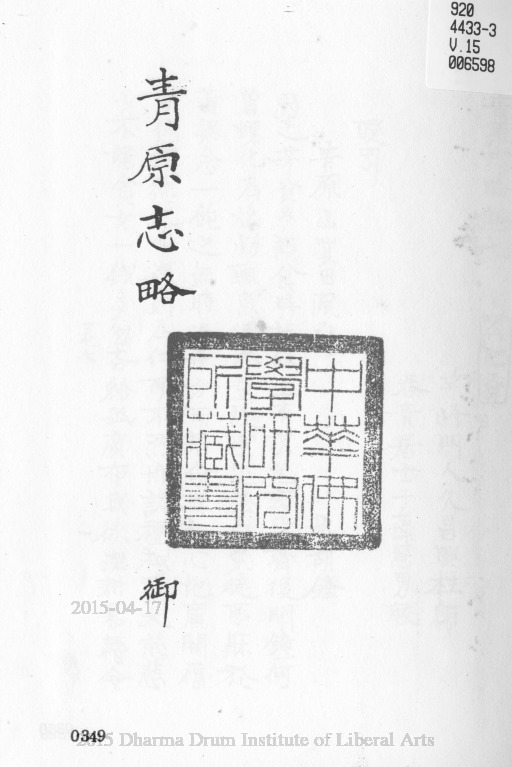 920
4433-3
V.15
006598
青原志略
中華佛
學研究
所藏書
御
2015-04-17
0349
2015 Dharma Drum Institute of Liberal Arts